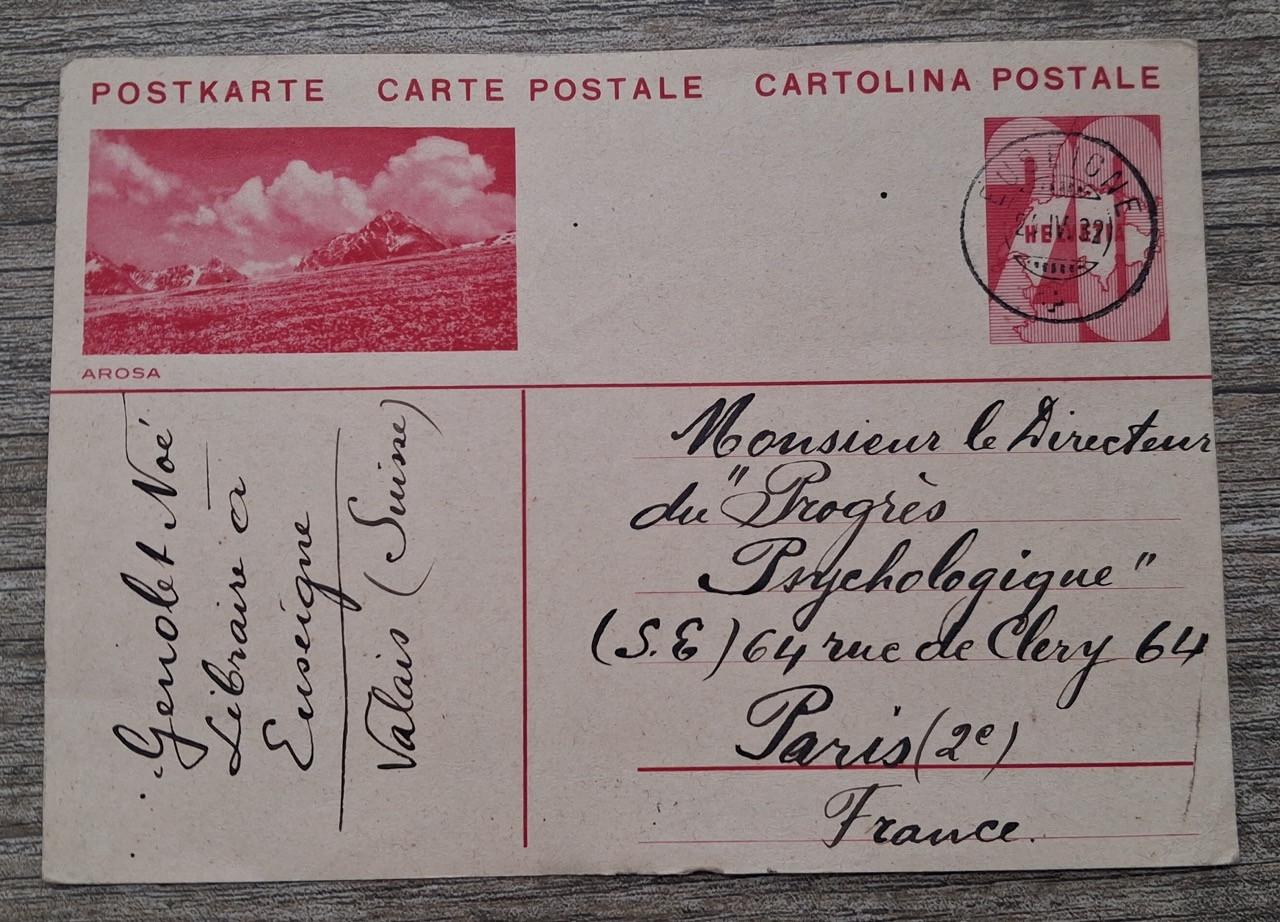 POSTKARTE CARTE POSTALE CARTOLINA POSTALE
AROSA
24.IV.32
20
Genolet Noé
Libraire à
Enseigne
Valais (Suisse)
Monsieur le Directeur
du "Progrès
Psychologique"
(S.E) 64 rue de Clery 64
Paris (2e)
France.